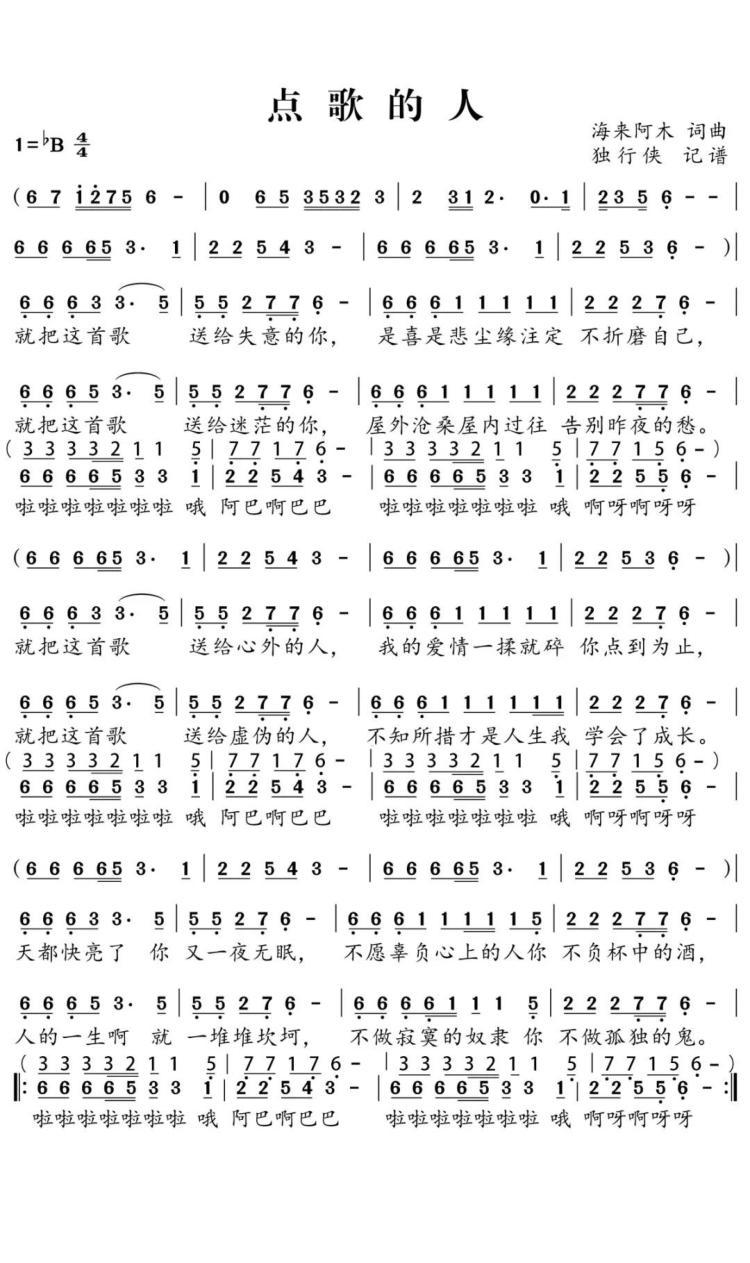 点歌的人
1=♭B 4/4
海来阿木 词曲
独行侠 记谱
(6 7 1275 6 - | 0 6 5 3532 3 | 2 31 2· 0·1 | 235 6 - - |
6 6 6 65 3· 1 | 2 2 5 4 3 - | 6 6 6 65 3· 1 | 2 2 5 3 6 - )|
6 6 6 3 3· 5 | 5 5 2 7 7 6 - | 6 6 6 1 1 1 1 1 | 2 2 2 7 6 - |
就把这首歌 送给失意的你, 是喜是悲尘缘注定 不折磨自己,
6 6 6 5 3· 5 | 5 5 2 7 7 6 - | 6 6 6 1 1 1 1 1 | 2 2 2 7 6 - |
就把这首歌 送给迷茫的你, 屋外沧桑屋内过往 告别昨夜的愁。
(3 3 3 3 2 1 1 5 | 7 7 1 7 6 - | 3 3 3 3 2 1 1 5 | 7 7 1 5 6 - )
6 6 6 6 5 3 3 1 | 2 2 5 4 3 - | 6 6 6 6 5 3 3 1 | 2 2 5 5 6 - |
啦啦啦啦啦啦啦 哦 阿巴啊巴巴 啦啦啦啦啦啦啦 哦 啊呀啊呀呀
(6 6 6 65 3· 1 | 2 2 5 4 3 - | 6 6 6 65 3· 1 | 2 2 5 3 6 - )|
6 6 6 3 3· 5 | 5 5 2 7 7 6 - | 6 6 6 1 1 1 1 1 | 2 2 2 7 6 - |
就把这首歌 送给心外的人, 我的爱情一揉就碎 你点到为止,
6 6 6 5 3· 5 | 5 5 2 7 7 6 - | 6 6 6 1 1 1 1 1 1 | 2 2 2 7 6 - |
就把这首歌 送给虚伪的人, 不知所措才是人生我 学会了成长。
(3 3 3 3 2 1 1 5 | 7 7 1 7 6 - | 3 3 3 3 2 1 1 5 | 7 7 1 5 6 - )
6 6 6 6 5 3 3 1 | 2 2 5 4 3 - | 6 6 6 6 5 3 3 1 | 2 2 5 5 6 - |
啦啦啦啦啦啦啦 哦 阿巴啊巴巴 啦啦啦啦啦啦啦 哦 啊呀啊呀呀
(6 6 6 65 3· 1 | 2 2 5 4 3 - | 6 6 6 65 3· 1 | 2 2 5 3 6 - )|
6 6 6 3 3· 5 | 5 5 2 7 6 - | 6 6 6 1 1 1 1 1 5 | 2 2 2 7 7 6 - |
天都快亮了 你 又一夜无眠, 不愿辜负心上的人你 不负杯中的酒,
6 6 6 5 3· 5 | 5 5 2 7 6 - | 6 6 6 6 1 1 1 5 | 2 2 2 7 7 6 - |
人的一生啊 就 一堆堆坎坷, 不做寂寞的奴隶 你 不做孤独的鬼。
(3 3 3 3 2 1 1 5 | 7 7 1 7 6 - | 3 3 3 3 2 1 1 5 | 7 7 1 5 6 - )
‖: 6 6 6 6 5 3 3 1 | 2 2 5 4 3 - | 6 6 6 6 5 3 3 1 | 2 2 5 5 6 - :‖
啦啦啦啦啦啦啦 哦 阿巴啊巴巴 啦啦啦啦啦啦啦 哦 啊呀啊呀呀